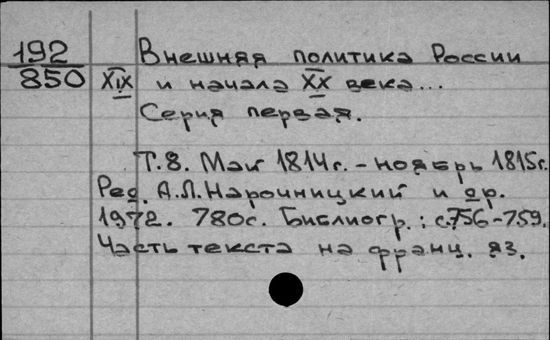 192 Внешняя политика России
850 XIX и начала XX века...
Серия первая.
Т.8. Май 1814г. - ноябрь 1815г.
Ред. А.Л.Нарочницкий и др.
1972. 780с. Библиогр.: с.756-759.
Часть текста на франц. яз.